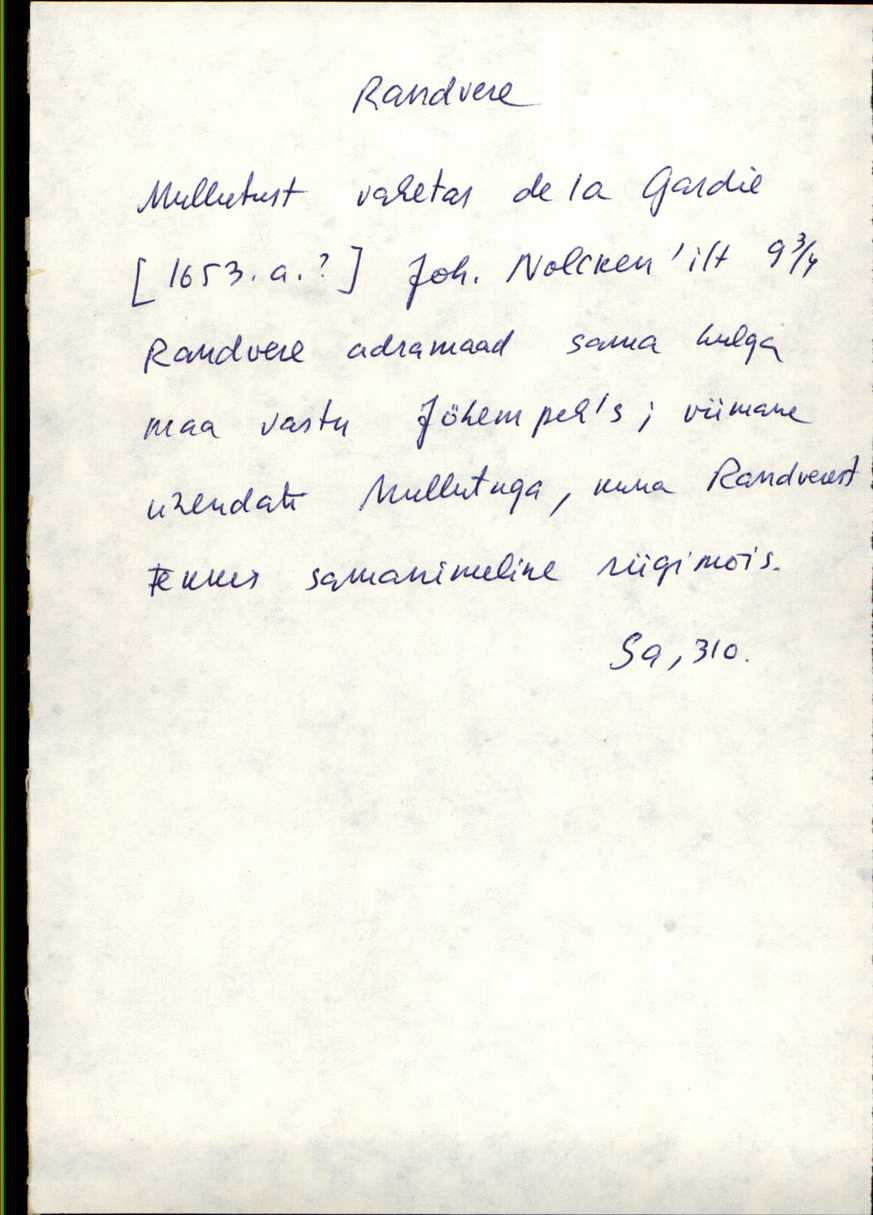 Randvere
Mullutust vahetas de la Gardie
[1653. a.?] Joh. Nolcken'ilt 9 3/4
Randvere adramaad sama hulga
maa vastu Jöhempeh's; viimane
ühendati Mullutuga, kuna Randverest
tekkis samanimeline riigimõis.
Sa, 310.